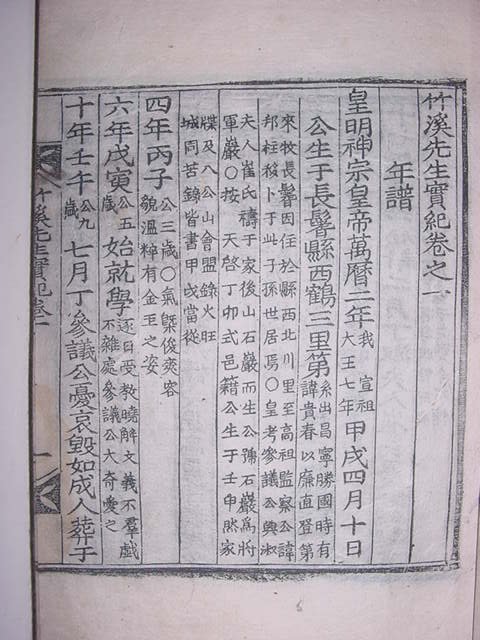 竹溪先生實紀卷之一
年譜
皇明神宗皇帝萬曆二年我 宣祖大王七年甲戌四月十日
公生于長鬐縣西鶴三里第系出昌寧勝國時有諱貴春以廉直登第
來牧長鬐因任於縣西北川里至高祖監察公諱
邦柱移卜于此子孫世居焉○皇考參議公興淑
夫人崔氏禱于家後山石巖而生公號石巖爲將
軍巖○按 天啓丁卯式邑籍公生于壬申然家
牒及八公山會盟錄火旺
城同苦錄皆書甲戌當從
四年丙子公三歲○氣槩俊爽容貌溫粹有金玉之姿
六年戊寅公五歲始就學逐日受教曉解文義不羣戲不雜處參議公大奇愛之
十年壬午公九歲七月丁參議公憂哀毀如成人葬于
竹溪先生實紀卷一
一